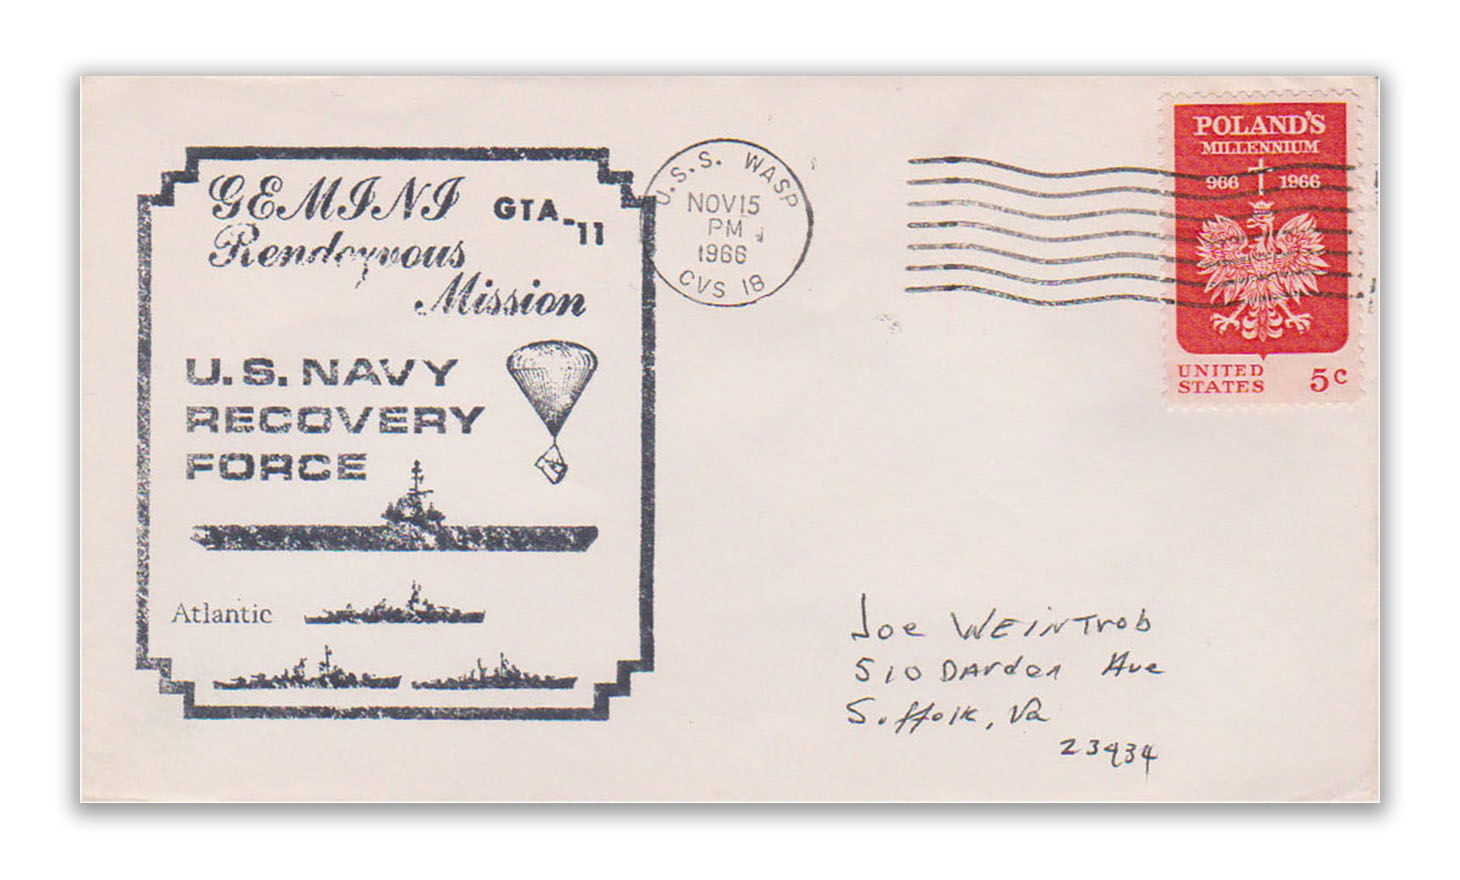 GEMINI GTA-11
Rendezvous
Mission
U.S. NAVY
RECOVERY
FORCE
Atlantic
U.S.S. WASP
NOV 15
PM
1966
CVS 18
POLAND'S
MILLENNIUM
966 1966
UNITED
STATES 5c
Joe WEINTroB
510 DArden Ave
Suffolk, Va
23434